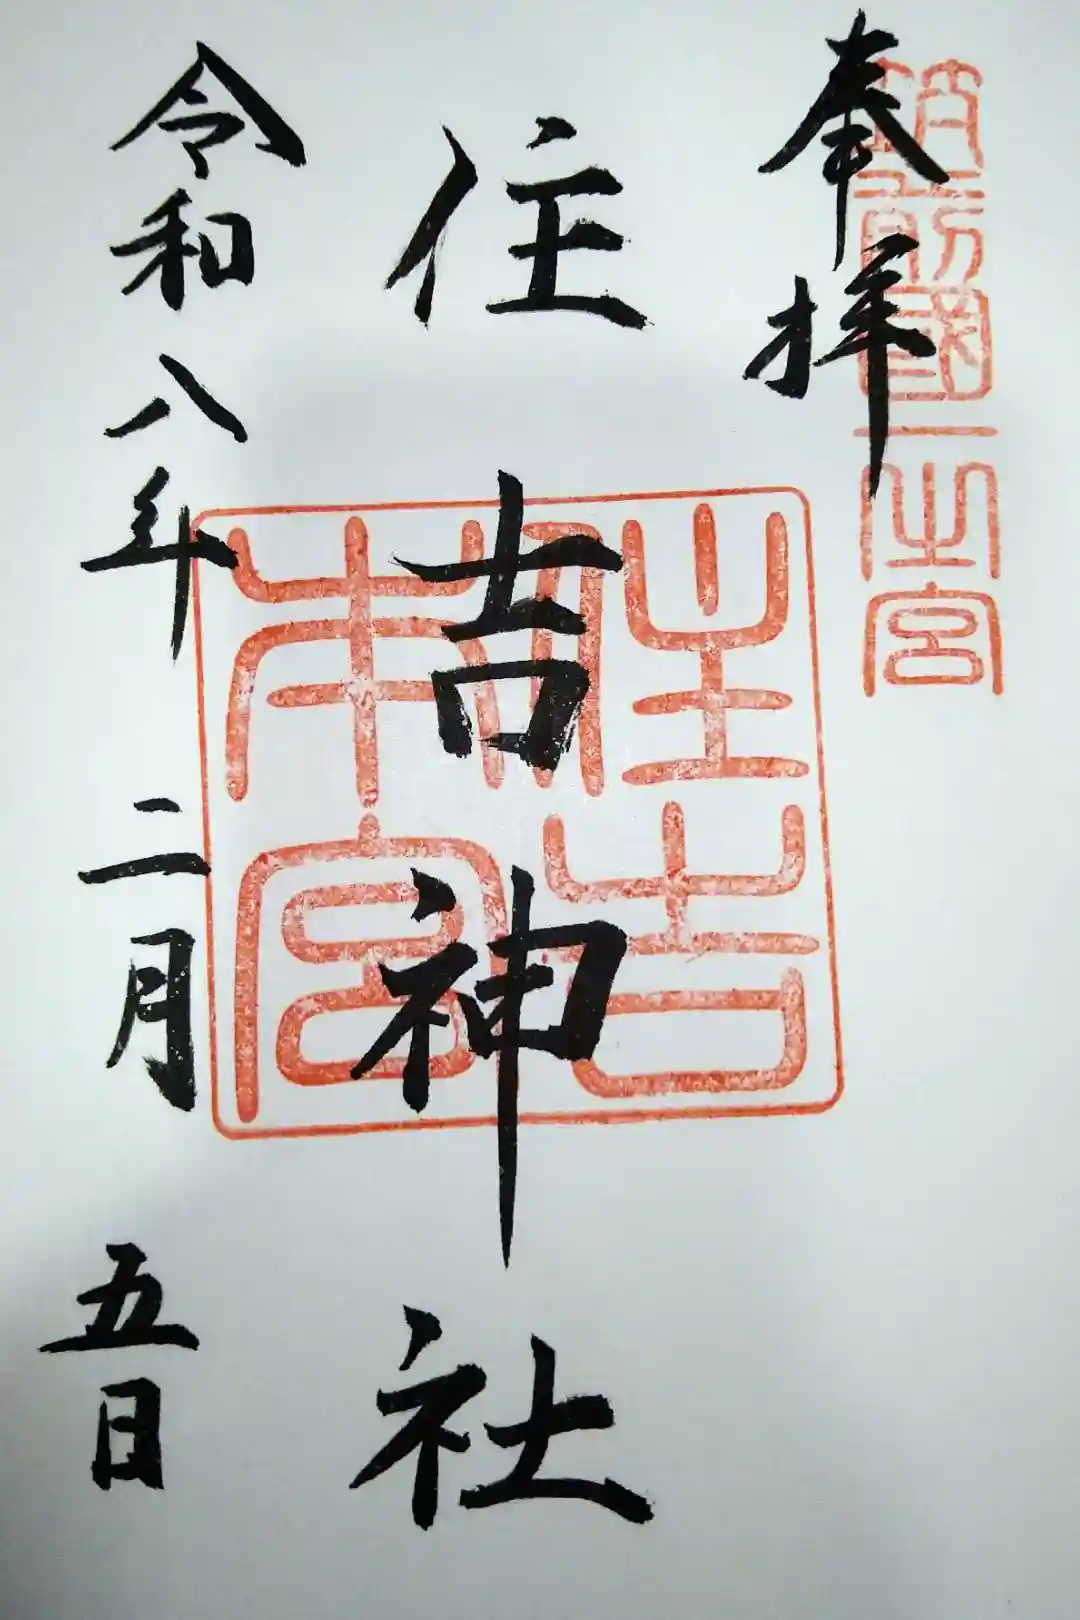 筑前國一之宮
奉拝
住吉本宮
住吉神社
令和八年二月五日